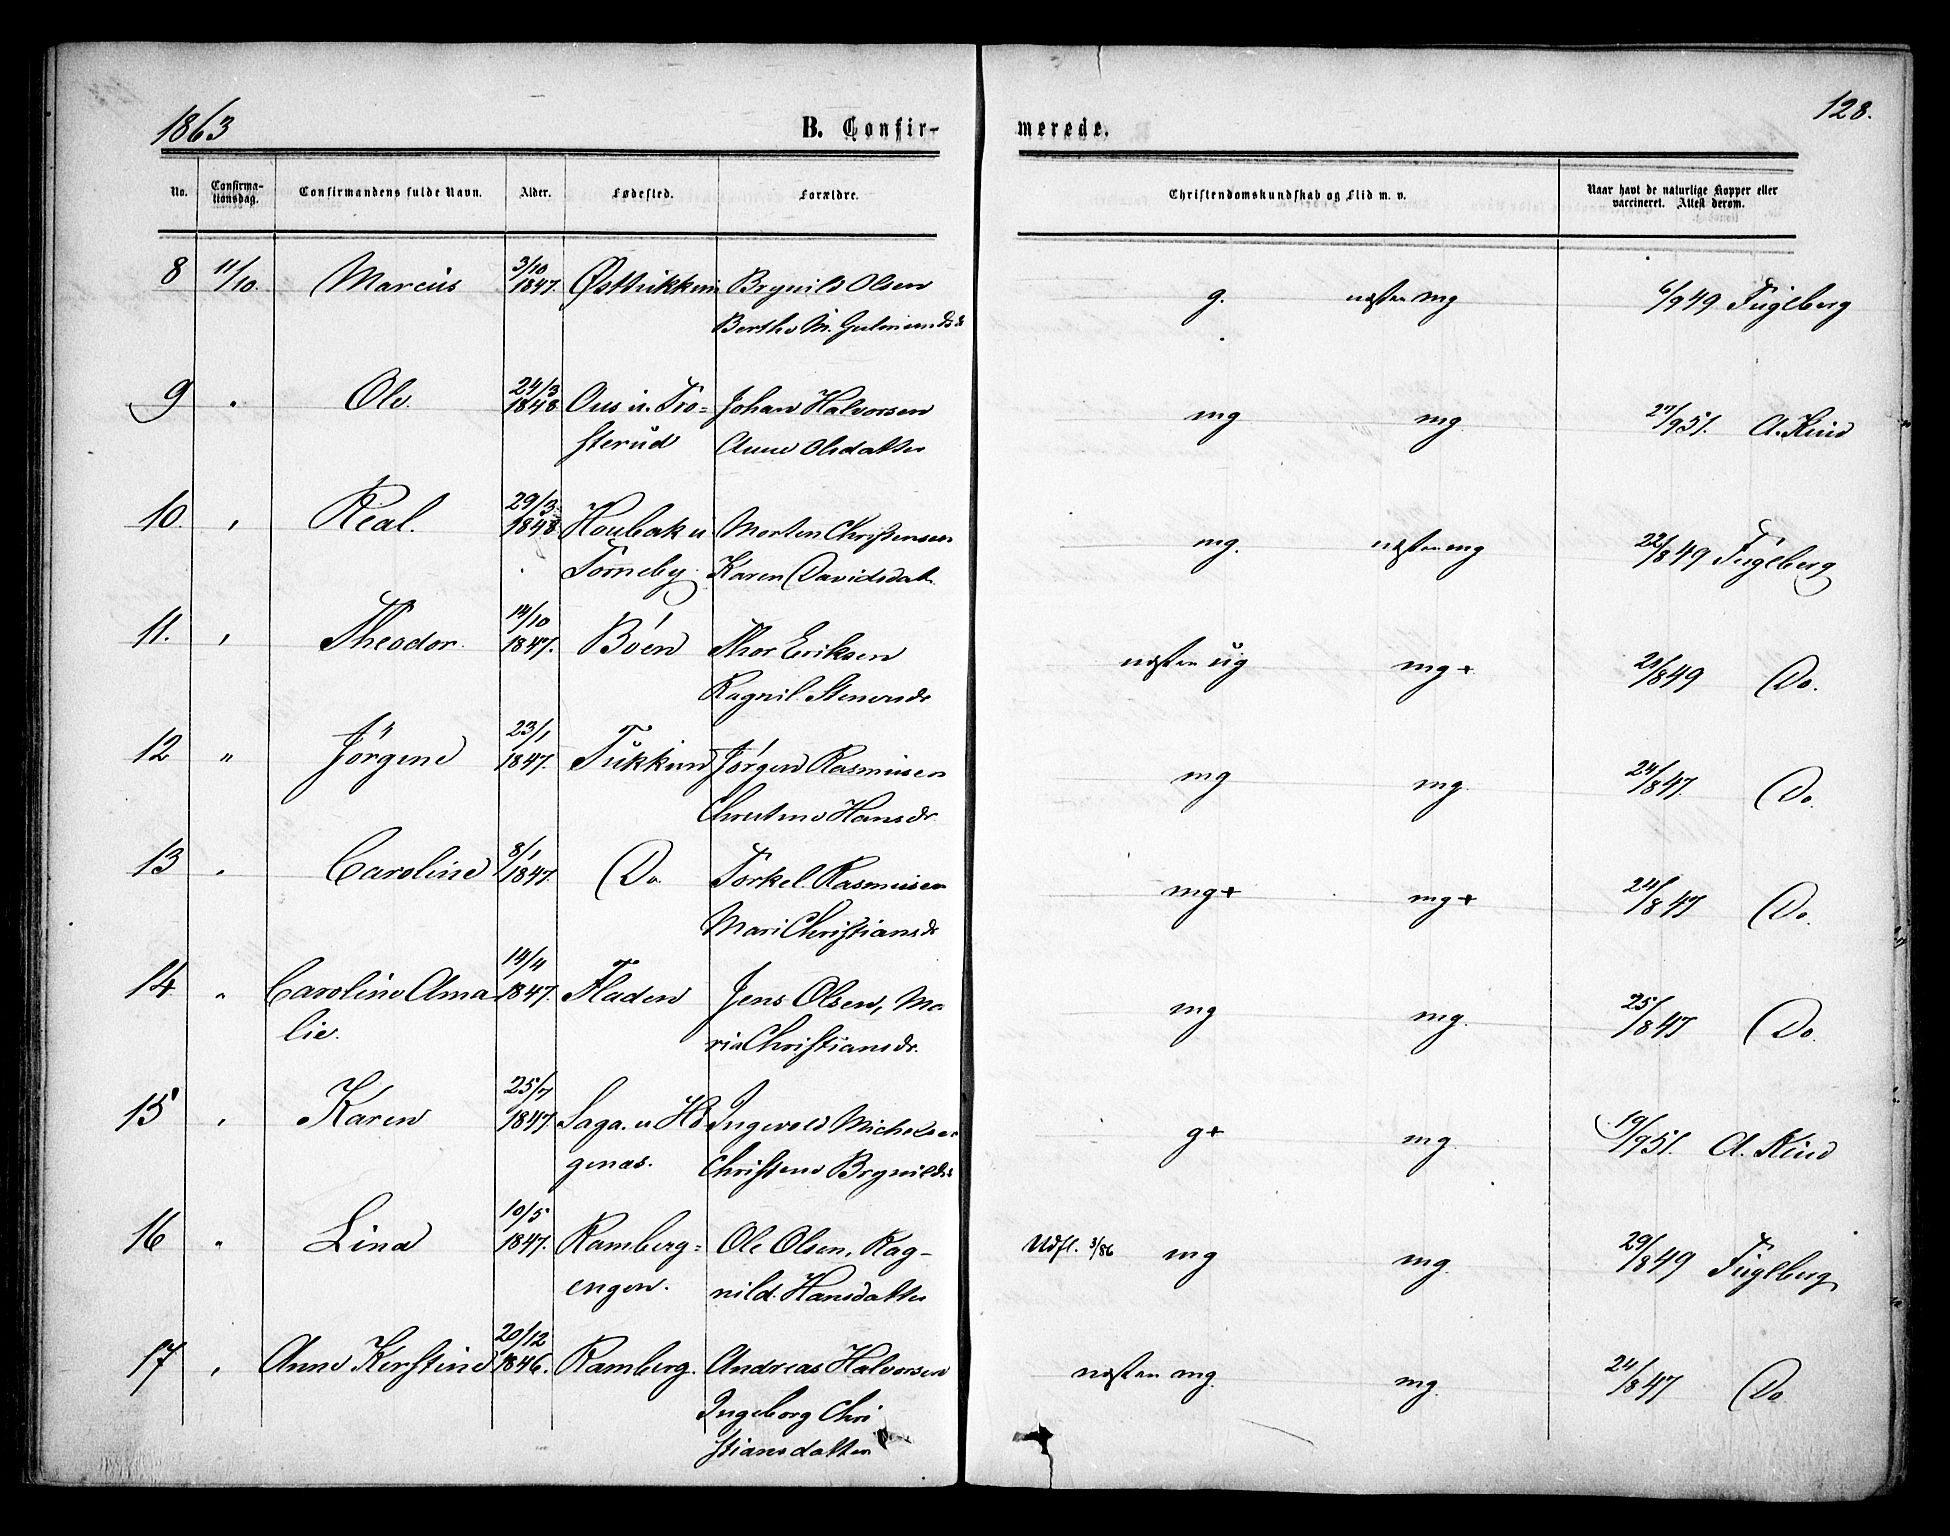 1863
B. Confir-
merede.
128.
No.
Confirma-
tionsdag.
Confirmandens fulde Navn.
Alder.
Fødested.
Forældre.
Christendomskundskab og Flid m. v.
Naar havt de naturlige Kopper eller
vaccineret. Attest derom.
8 11/10. Marcus 3/10 1847. Brynild Olsen g. næsten mg 6/9 49 Fuglberg
Berthe M.
9 " Ole. 24/3 1848 Aas u. Tro= Johan Halvorsen mg mg 27/9 51. A. Kind
sterud Anne Olsdatter
10 " Real. 29/3 1848 Houbak u Morten Christensen mg. næsten mg 22/8 49 Fuglberg
Torneby. Karen Davidsdatt.
11. " Theodor. 14/10 1847. Böen Thor Eriksen næsten ug mg+ 21/8 49 Do.
Ragnil
12 " Jörgene 23/1 1847. Tukkun Jörgen Rasmusen mg mg. 24/8 47. Do.
Christine Hansdr
13 " Caroline 8/1 1847. Do. Torkel Rasmusen mg+ mg+ 24/8 47 Do.
Mari Christiansdr
14 " Caroline Ama 14/4 1847. Fladen Jens Olsen, Ma mg mg. 25/8 47 Do.
lie. ria Christiansdr.
15 " Karen 25/7 1847. Saga. u Hö Ingevold Michelsen g+ mg. 19/9 51. A. Kind
genæs. Christine Brynildsd
16 " Lina 10/5 1847. Ramberg= Ole Olsen, Rag- Udfl. 3/86 mg mg. 29/8 49 Fuglberg
engen. nild. Hansdatter
17 " Anne Kerstine 20/12 1846. Ramberg. Andreas Halvorsen næsten mg. mg. 24/8 47 Do
Ingeborg Chri
stiansdatter